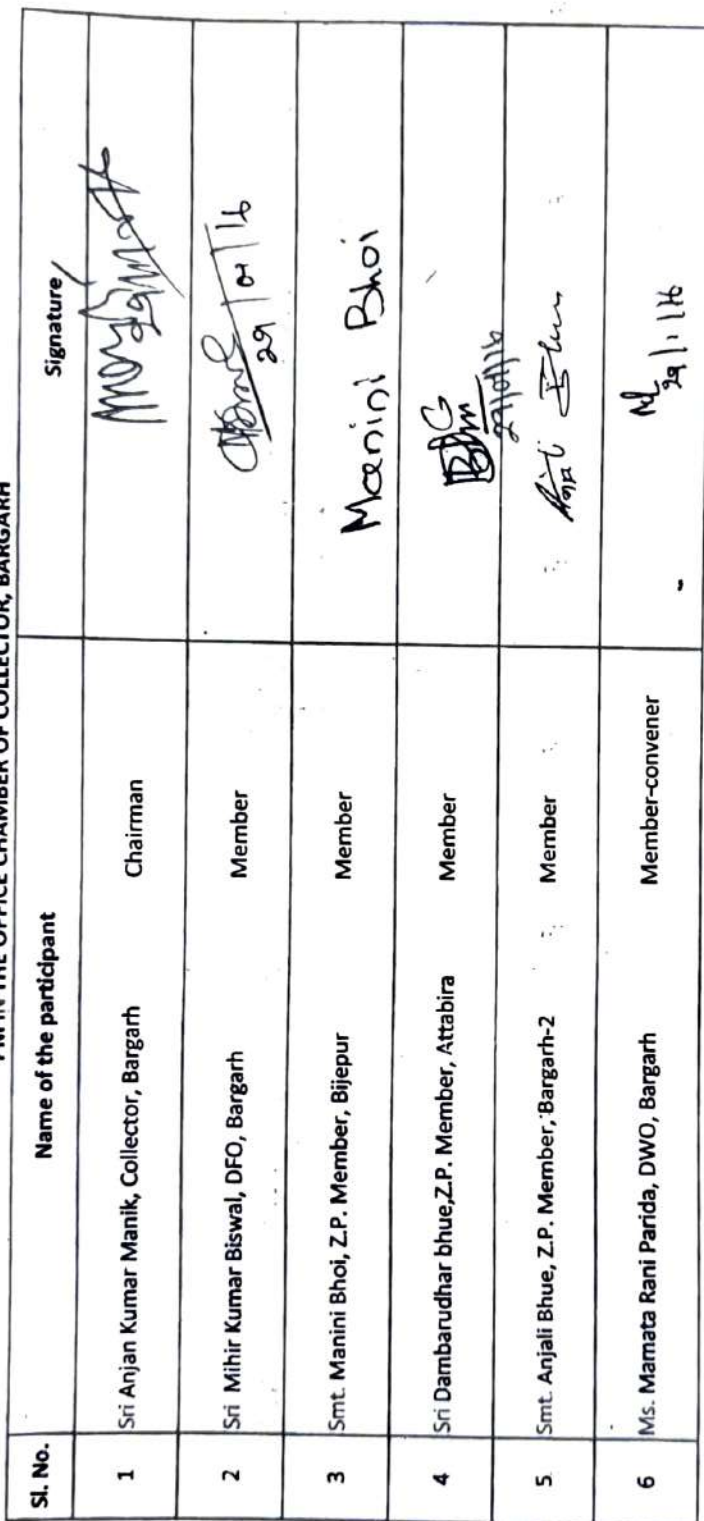 PM IN THE OFFICE CHAMBER OF COLLECTOR, BARGARH
Sl. No. Name of the participant Signature
1 Sri Anjan Kumar Manik, Collector, Bargarh Chairman
2 Sri Mihir Kumar Biswal, DFO, Bargarh Member 29/01/16
3 Smt. Manini Bhoi, Z.P. Member, Bijepur Member Manini Bhoi
4 Sri Dambarudhar bhue,Z.P. Member, Attabira Member 29/01/16
5 Smt. Anjali Bhue, Z.P. Member, Bargarh-2 Member
6 Ms. Mamata Rani Parida, DWO, Bargarh Member-convener 29/1/16